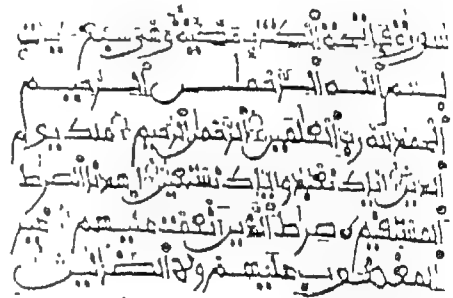 سورة فاتحة الكتب
بسم الله الرحمن الرحيم
الحمد لله رب العلمين الرحمن الرحيم ملك يوم
الدين اياك نعبد واياك نستعين اهدنا الصرط
المستقيم صرط الذين انعمت عليهم غير
المغضوب عليهم ولا الضالين